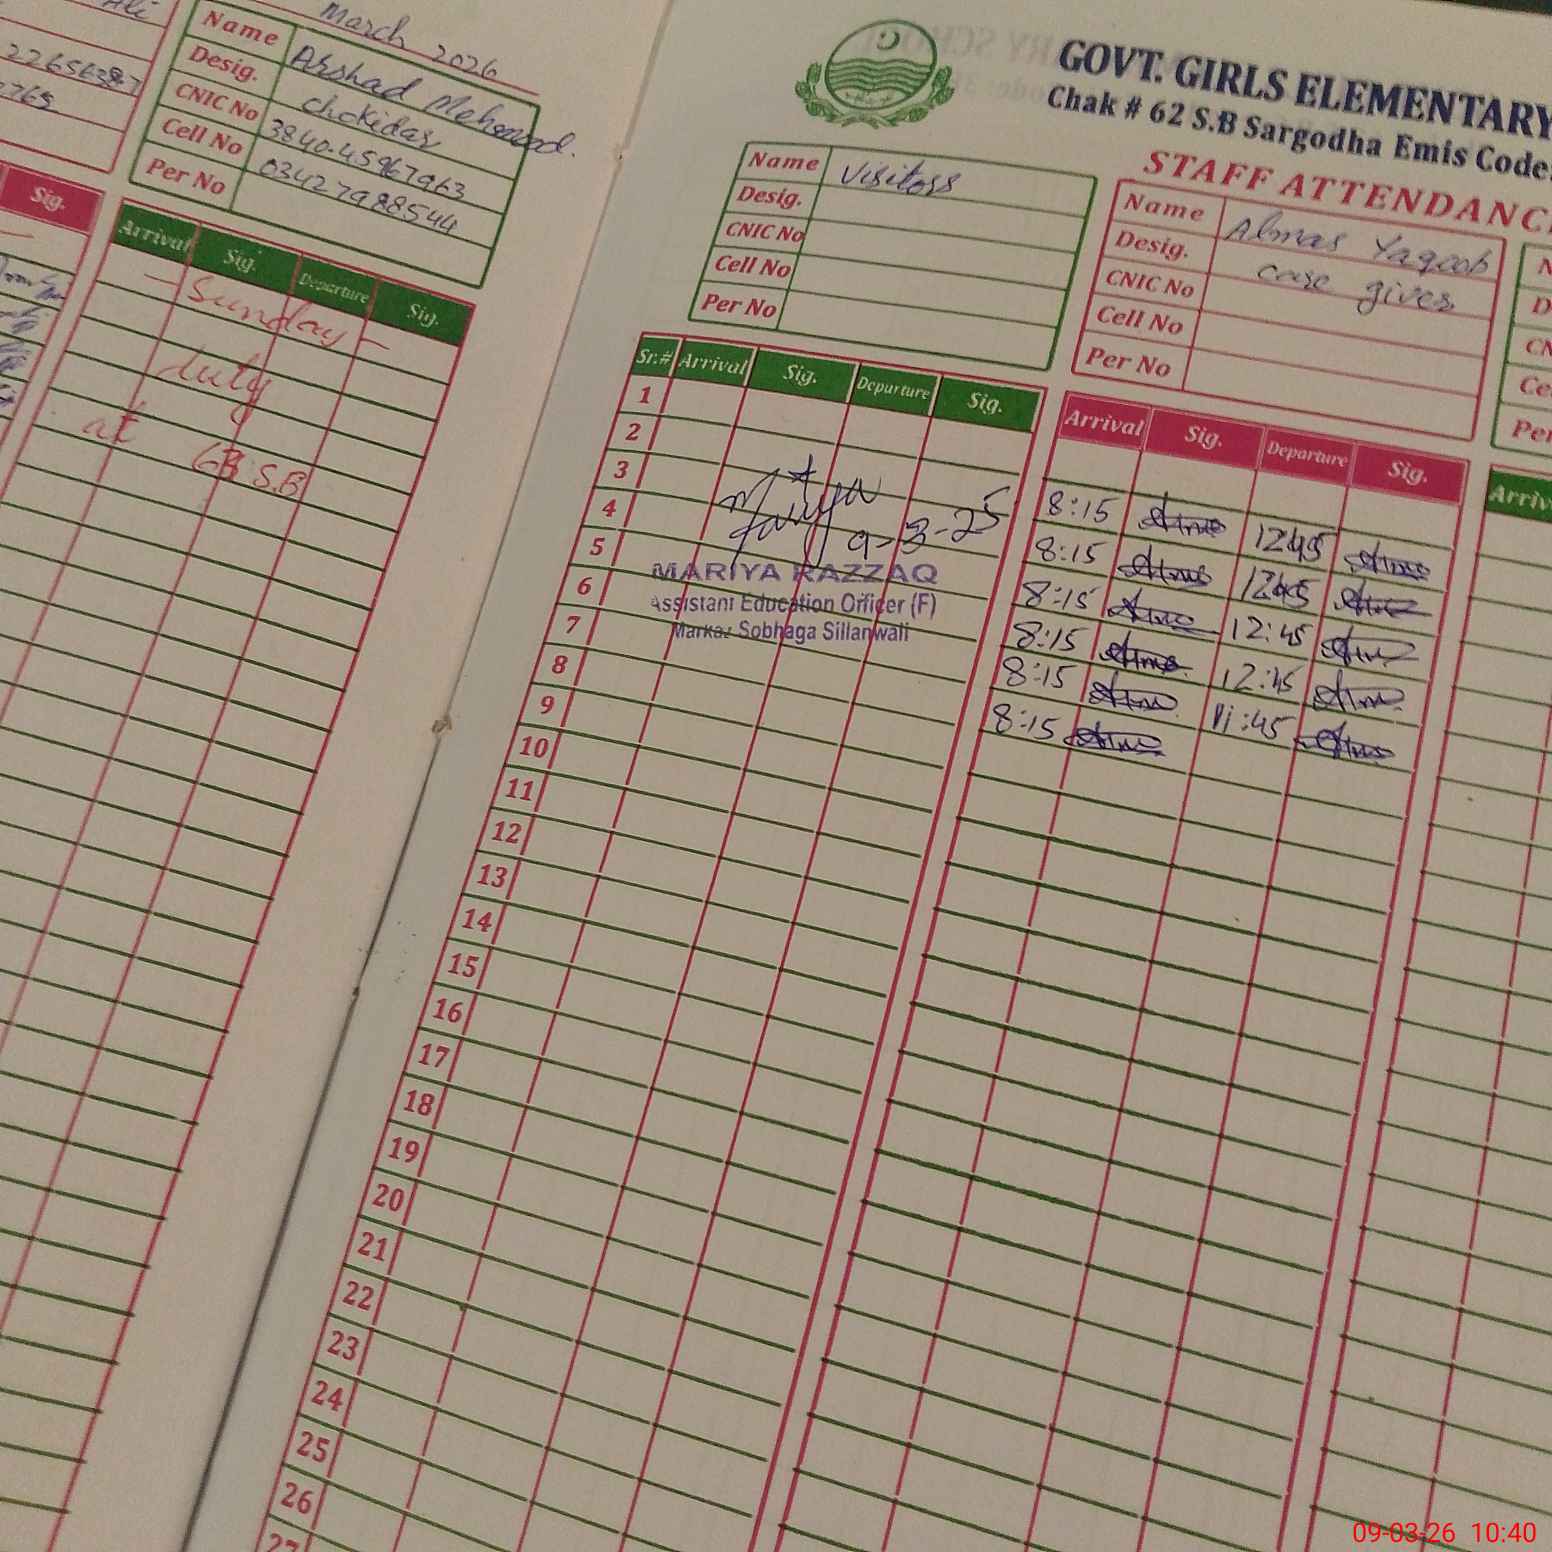 March 2026
Name Arshad Mehmood.
Desig. chokidar
CNIC No 384045967963
Cell No 03427988544
Per No
Sig.
Arrival Sig. Departure Sig.
- Sunday -
duty
at 63 S.B
GOVT. GIRLS ELEMENTARY
Chak # 62 S.B Sargodha Emis Code:
STAFF ATTENDANC
Name Visitors
Desig.
CNIC No
Cell No
Per No
Name Almas Yaqoob
Desig. care giver
CNIC No
Cell No
Per No
Sr.# Arrival Sig. Departure Sig.
Arrival Sig. Departure Sig.
1
2
3
4
5
6
7
8
9
10
11
12
13
14
15
16
17
18
19
20
21
22
23
24
25
26
27
Mariya
9-3-25
MARIYA RAZZAQ
Assistant Education Officer (F)
Markaz Sobhaga Sillanwali
8:15 1245
8:15 1245
8:15 12:45
8:15 12:45
8:15 11:45
8:15
09-03-26 10:40